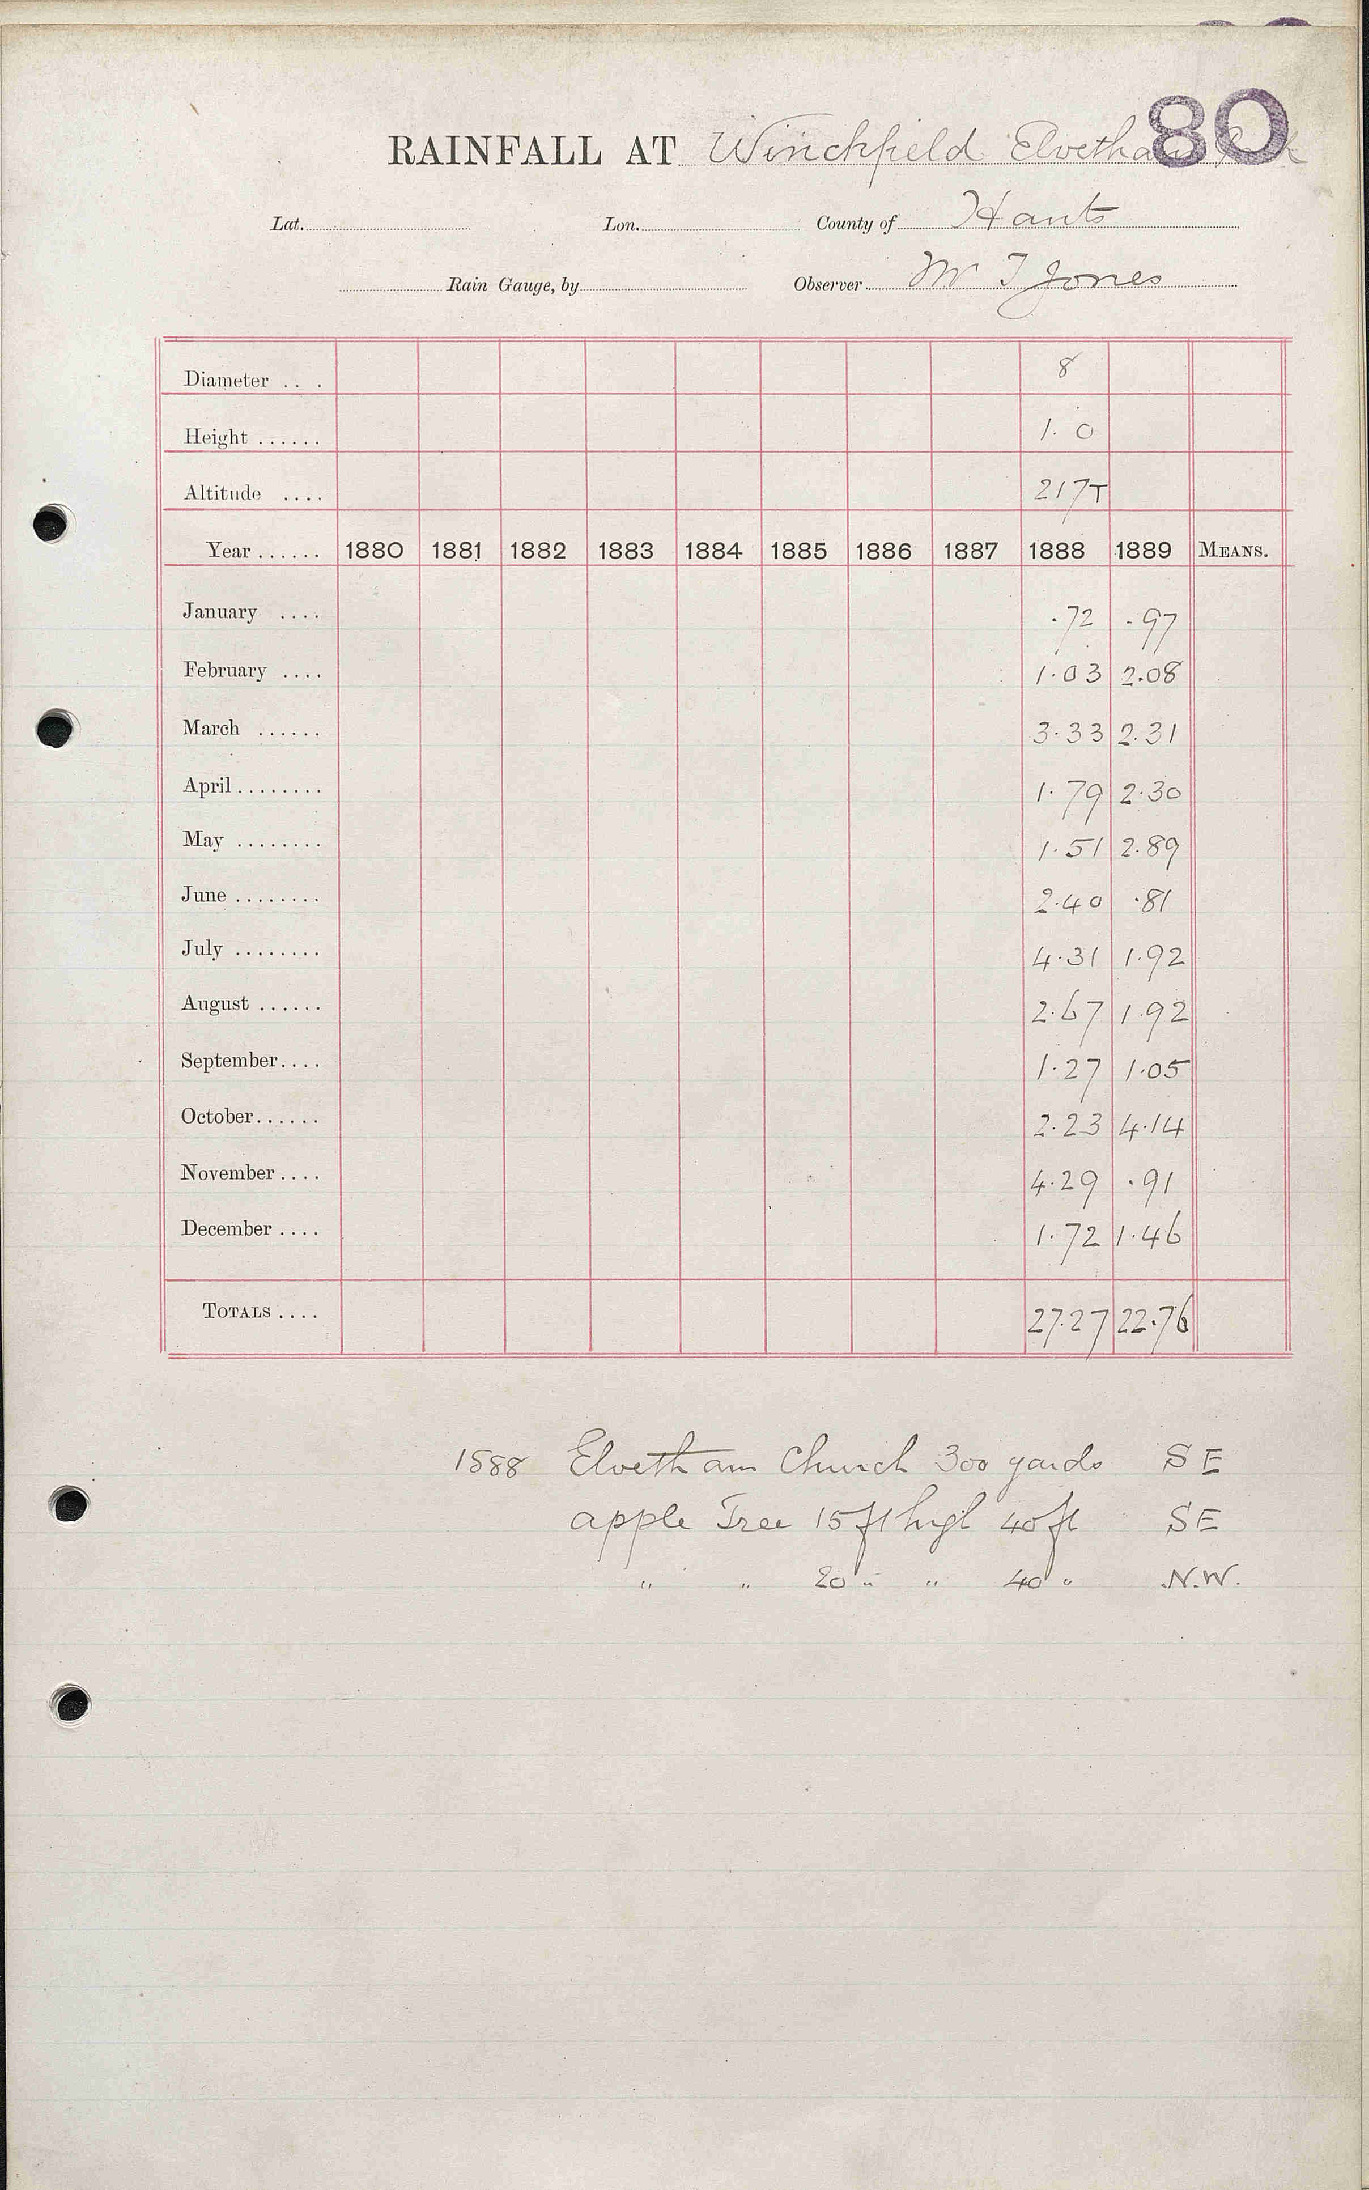 80
RAINFALL AT Winchfield Elvetham Park
Lat. Lon. County of Hants
Rain Gauge, by Observer Mr T Jones
Diameter . . . 8
Height ...... 1. 0
Altitude .... 217T
Year ...... 1880 1881 1882 1883 1884 1885 1886 1887 1888 1889 MEANS.
January .... .72 .97
February .... 1.03 2.08
March ...... 3.33 2.31
April ........ 1.79 2.30
May ........ 1.51 2.89
June ........ 2.40 .81
July ........ 4.31 1.92
August ...... 2.67 1.92
September.... 1.27 1.05
October...... 2.23 4.14
November .... 4.29 .91
December .... 1.72 1.46
TOTALS .... 27.27 22.76
1888 Elvetham Church 300 yards SE
apple Tree 15 ft high 40 ft SE
" " 20 " " 40 " N.W.